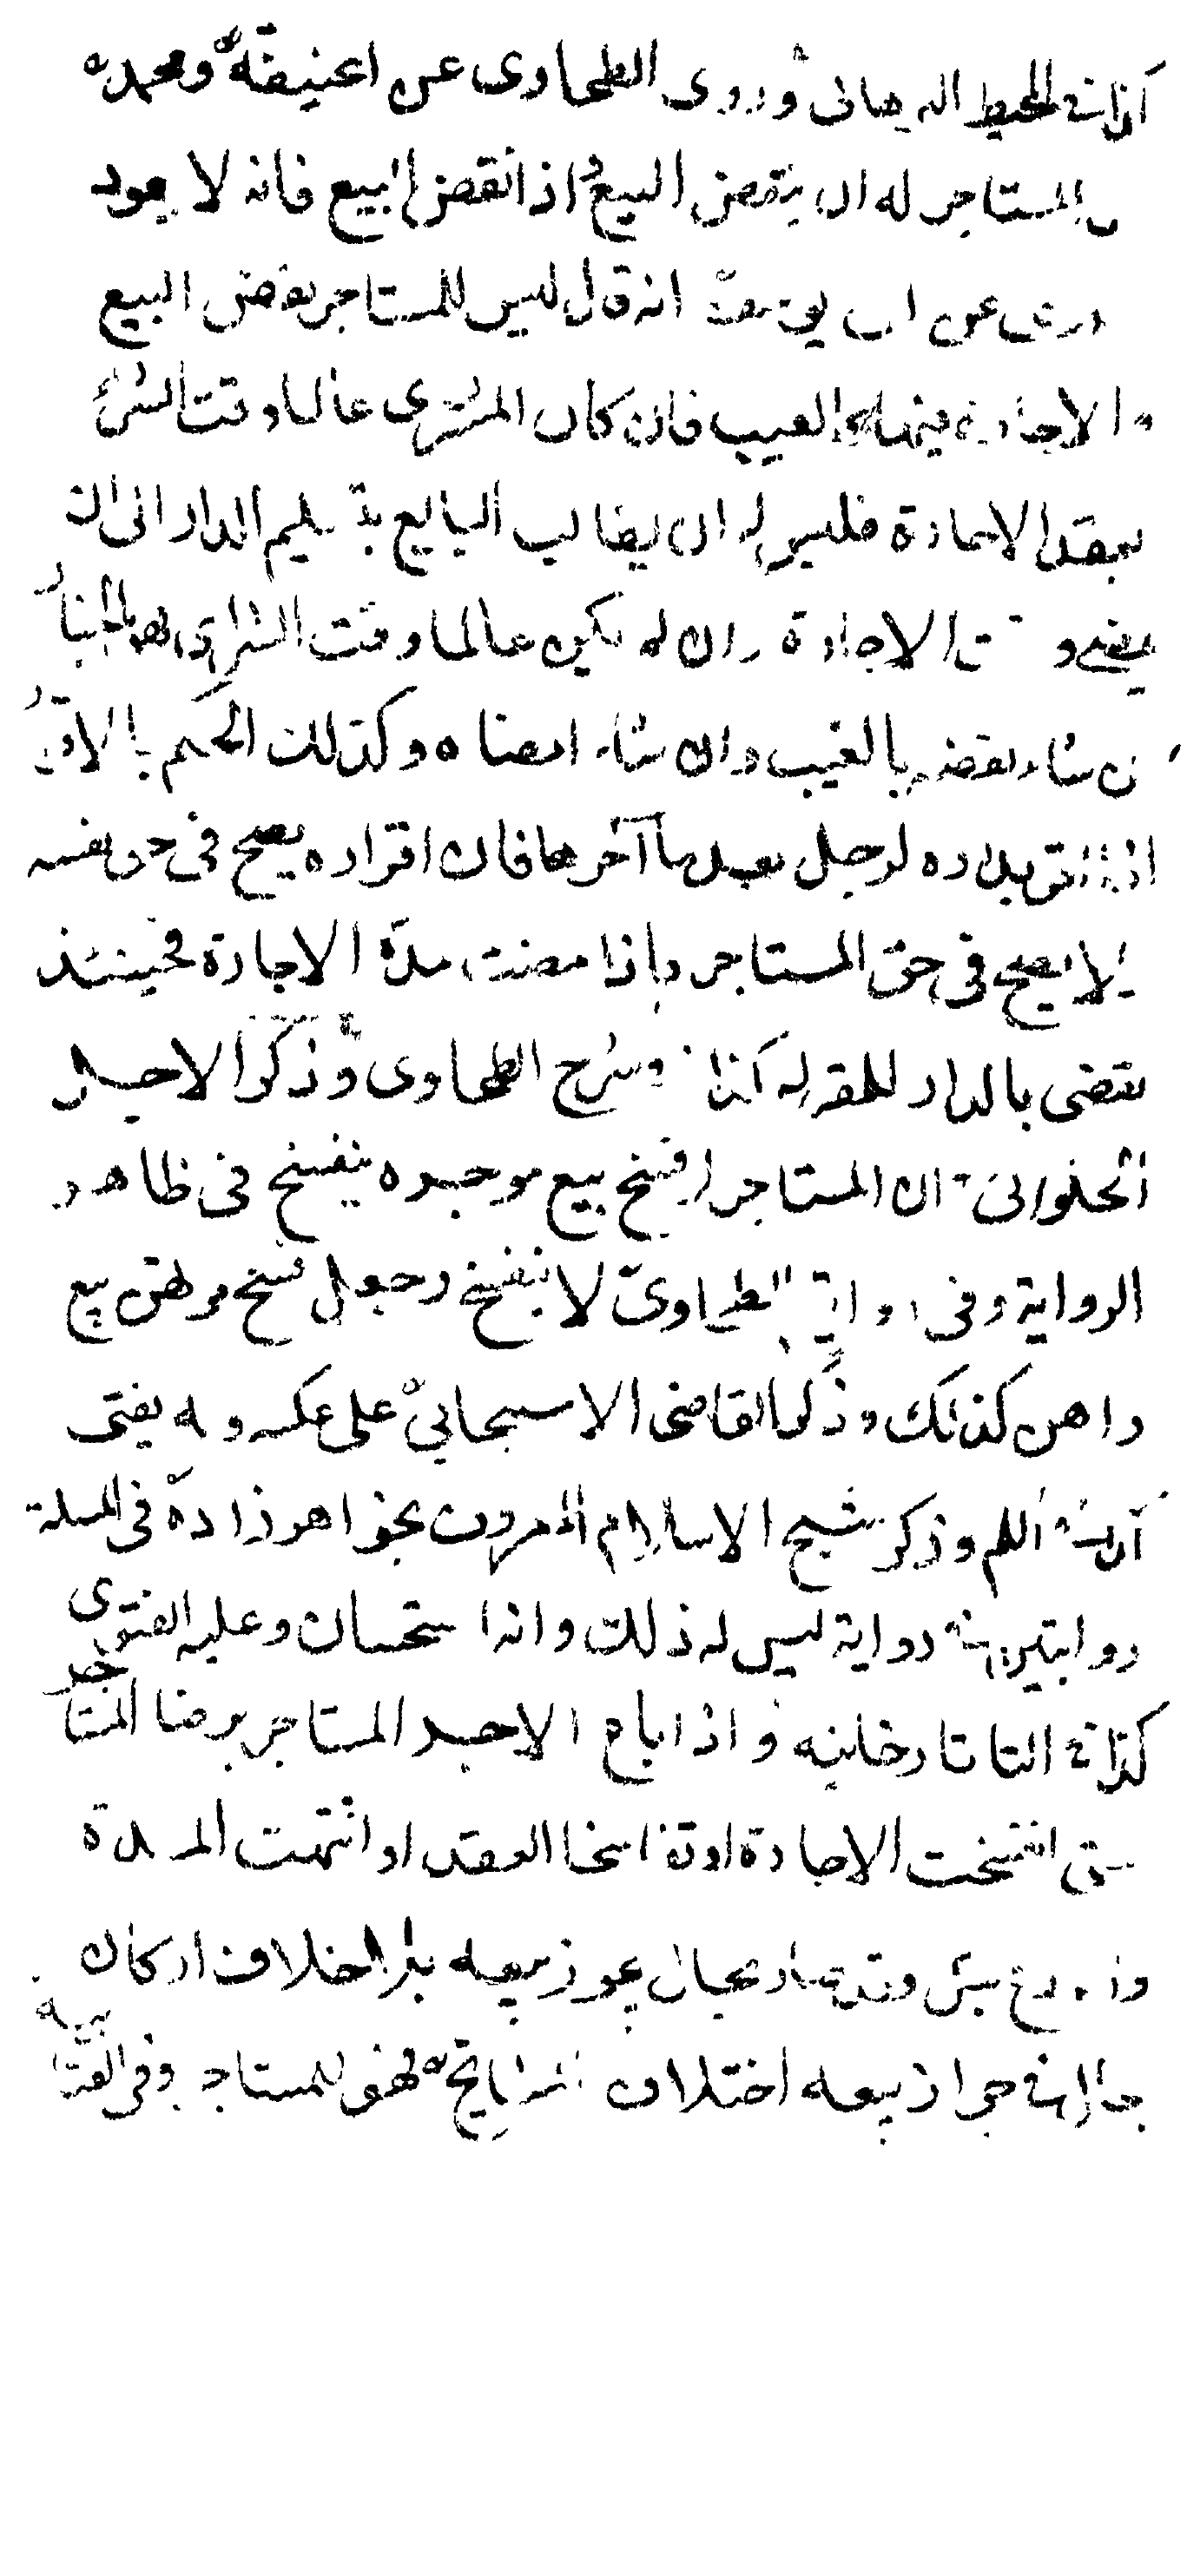 كذا في المحيط البرهاني وروى الطحاوي عن ابحنيفة ومحمد
المستاجر له ان ينقض البيع اذا نقض البيع فانه لا يعود
وروى عن ابي يوسف انه قال ليس للمستاجر نقض البيع
والاجارة فيها كالعيب فان كان المشترى عالما وقت الشرى
بعقد الاجارة فليس له ان يطالب البايع بتسليم الدار الى ان
يمضى وقت الاجارة وان لم يكن عالما وقت الشرا فهو بالخيار
ان شاء نقضه بالعيب وان شاء امضاه وكذلك الحكم بالاقر
اذا اقر بداره لرجل بعد ما آخرها فان اقراره يصح فى حق نفسه
ولا يصح فى حق المستاجر واذا مضت مدة الاجارة فحينئذ
يقضى بالدار للمقر له كذا في شرح الطحاوى وذكر الاجل
الحلوانى ان المستاجر اذا فسخ بيع موجره ينفسخ فى ظاهر
الرواية وفى رواية الطحاوى لا ينفسخ وجعل فسخ مرتهن بيع
راهن كذلك وذكر القاضى الاسبيجابى على عكسه وبه يفتى
كذا في وذكر شيخ الاسلام المعروف بخواهر زاده فى المسلة
روايتين في رواية ليس له ذلك وانه استحسان وعليه الفتوى
كذا في التاتارخانيه واذا باع الاجر المستاجر برضا المستاجر
حتى انفسخت الاجارة او تفاسخا العقد او انتهت المدة
والزرع بقل وقد صار بحال يجوز بيعه بلا خلاف او كان
بحال في جواز بيعه اختلاف المشايخ فهو للمستاجر وفى العتابيه